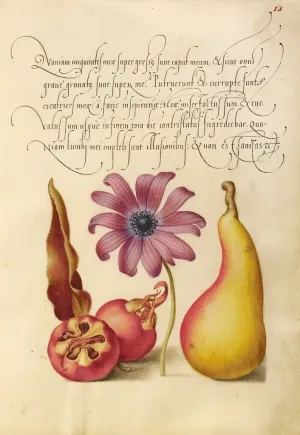 Quoniam iniquitates meę supergressę sunt caput meum, & sicut onus
graue grauatę sunt super me. Putruerunt & corruptę sunt
cicatrices meę a facie insipientię meę. Miser factus sum, & cur
vatus sum usque in finem, tota die contristatus ingrediebar. Quo
niam lumbi mei impleti sunt illusionibus: & non est sanitas &c.